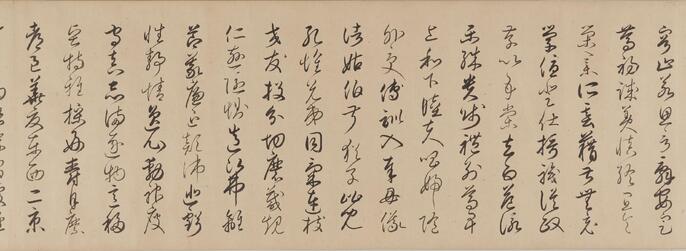 容止若思言辭安定
篤初誠美慎終宜令
榮業所基籍甚無竟
學優登仕攝職從政
存以甘棠去而益詠
樂殊貴賤禮別尊卑
上和下睦夫唱婦隨
外受傅訓入奉母儀
諸姑伯叔猶子比兒
孔懷兄弟同氣連枝
交友投分切磨箴規
仁慈隱惻造次弗離
節義廉退顛沛匪虧
性靜情逸心動神疲
守真志滿逐物意移
堅持雅操好爵自縻
都邑華夏東西二京